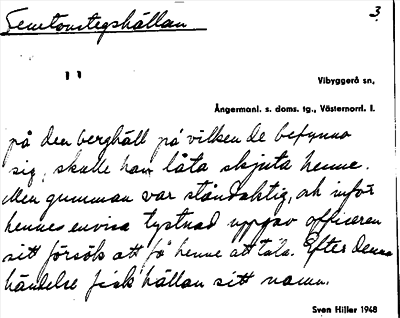 3.
Semtonstegshällan
"
Vibyggerå sn,
Ångermanl. s. doms. tg., Västernorrl. l.
på den berghäll på vilken de befunno
sig, skulle han låta skjuta henne.
Men gumman var ståndaktig, och inför
hennes envisa tystnad uppgav officeren
sitt försök att få henne att tala. Efter denna
händelse fick hällan sitt namn.
Sven Hiller 1948